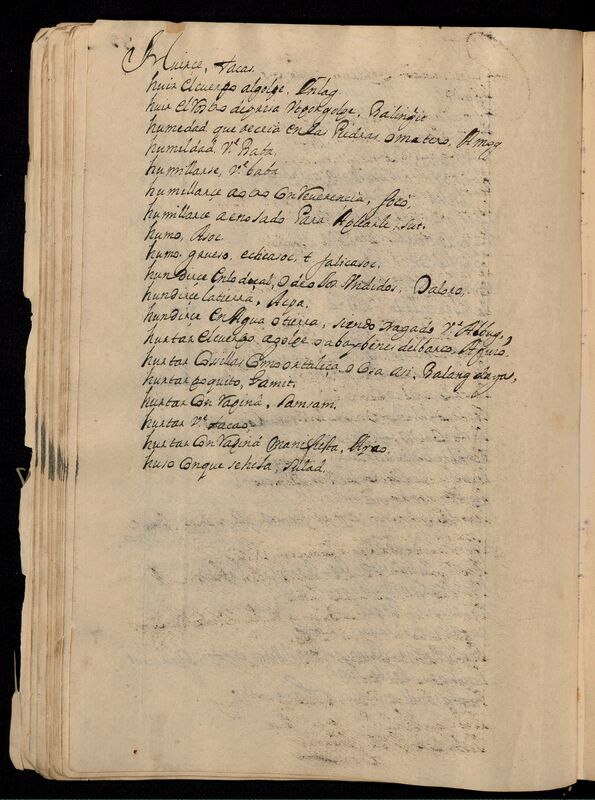 Huirce, tacas.
huir el cuerpo algolpe, Inlag.
huir el Rostro deprisa Vepor golpe, Balingi
humedad que se cria en las Piedras o matero, Amog
humeldad Vᵉ Baba.
humillarse, vᵉ baba
humillarce a otro con Reverencia, focó.
humillarce a enojado Para Aplcarle, sut.
humo, Asoc.
humo grueso, echicasoc, t jalicasoc.
hundirce en lodacal, o de los Undidos, Daloro.
hundirce latierra, Acpa.
hundirce en Agua o tierra, siendo tragado Vᵉ Abbug,
hurtar el cuerpo agolpe o abaybenes del barco, Aguro.
hurtar Cosillas Como ortaliça, o Cosa asi, Balangdaya,
hurtar poquito, Tamit.
hurtar con Vagina, Tamsam.
hurtar vᵉ tacao.
hurtar con Vagina manifiesta, Agao.
huso conque sehila, Sulad.